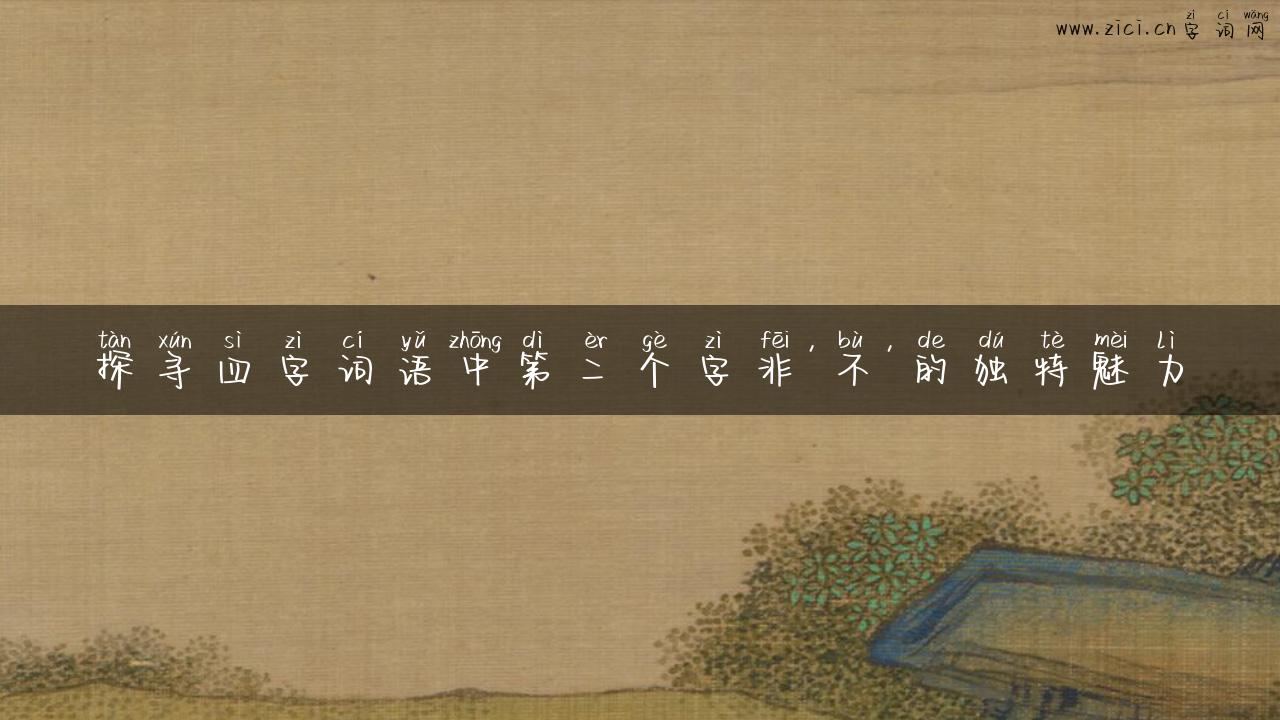 zì cí wǎng
www.zici.cn 字词网
tàn xún sì zì cí yǔ zhōng dì èr gè zì fēi , bù , de dú tè mèi lì
探寻四字词语中第二个字非 不 的独特魅力